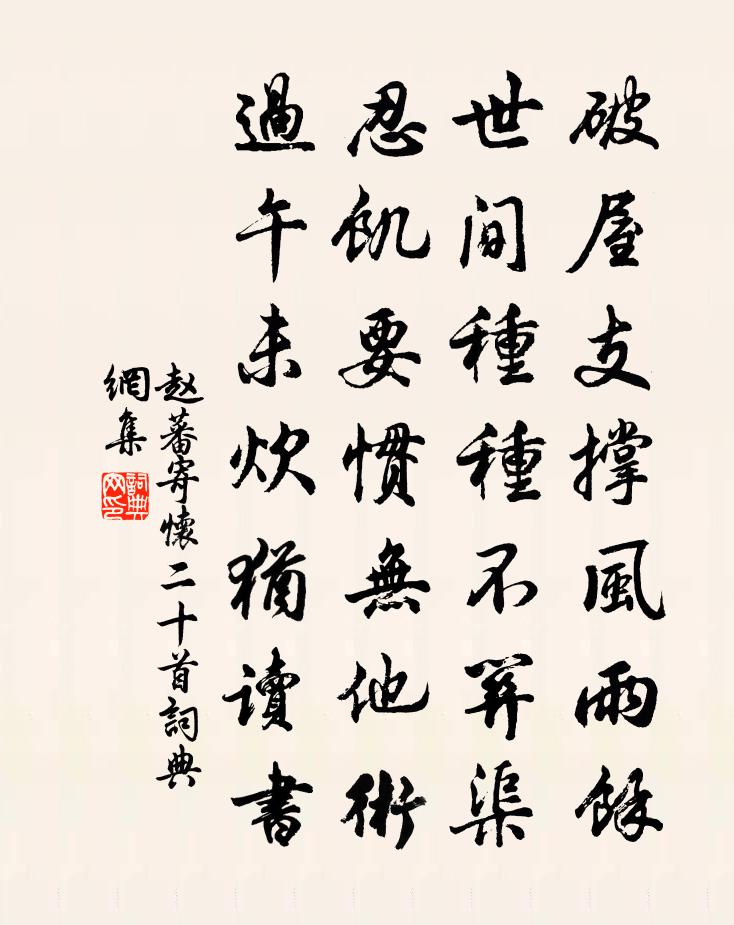 破屋支撑風雨餘
世間種種不關渠
忍飢要慣無他術
過午未炊猶讀書
赵蕃寄懷二十首詞典
網集
詞典
网印